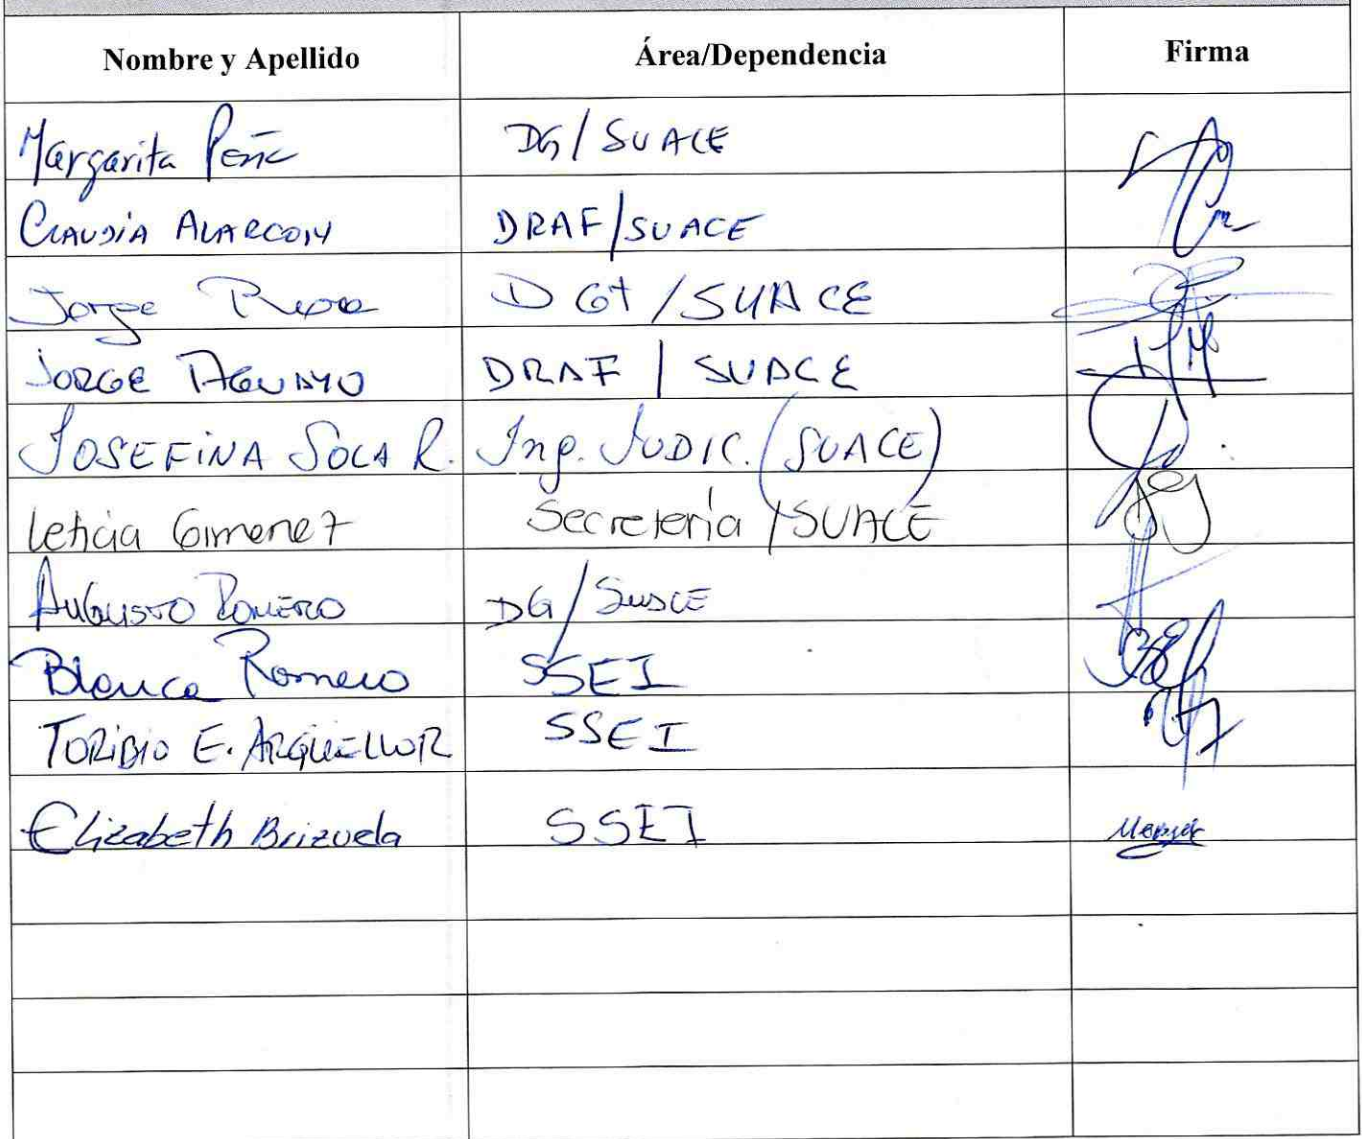 Nombre y Apellido Área/Dependencia Firma
Margarita Peña DG/SUACE
CLAUDIA ALARCON DRAF/SUACE
Jorge DGT/SUACE
JORGE AGUAYO DRAF/SUACE
JOSEFINA SOSA R. Ing. JUDIC. (SUACE)
Leticia Gimenez Secretería/SUACE
AUGUSTO ROMERO DG/SUACE
Blanca Romero SSEI
TORIBIO E. ARGÜELLO R SSEI
Elizabeth Brizuela SSEI